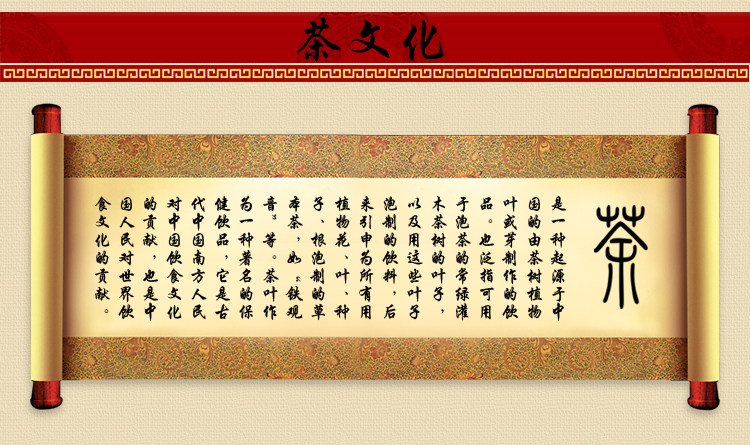 茶文化
茶
是一种起源于中
国的由茶树植物
叶或芽制作的饮
品。也泛指可用
于泡茶的常绿灌
木茶树的叶子，
以及用这些叶子
泡制的饮料，后
来引申为所有用
植物花、叶、种
子、根泡制的草
本茶，如“铁观
音”等。茶叶作
为一种著名的保
健饮品，它是古
代中国南方人民
对中国饮食文化
的贡献，也是中
国人民对世界饮
食文化的贡献。